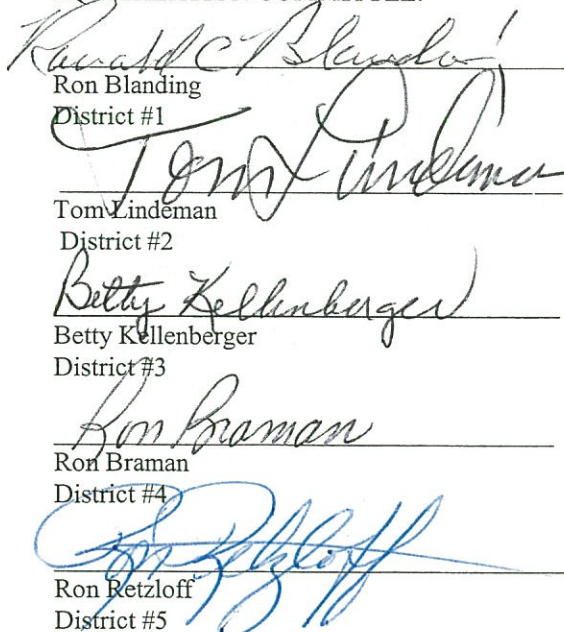 Ronald C Blanding
Ron Blanding
District #1
Tom Lindeman
Tom Lindeman
District #2
Betty Kellenberger
Betty Kellenberger
District #3
Ron Braman
Ron Braman
District #4
Ron Retzloff
Ron Retzloff
District #5